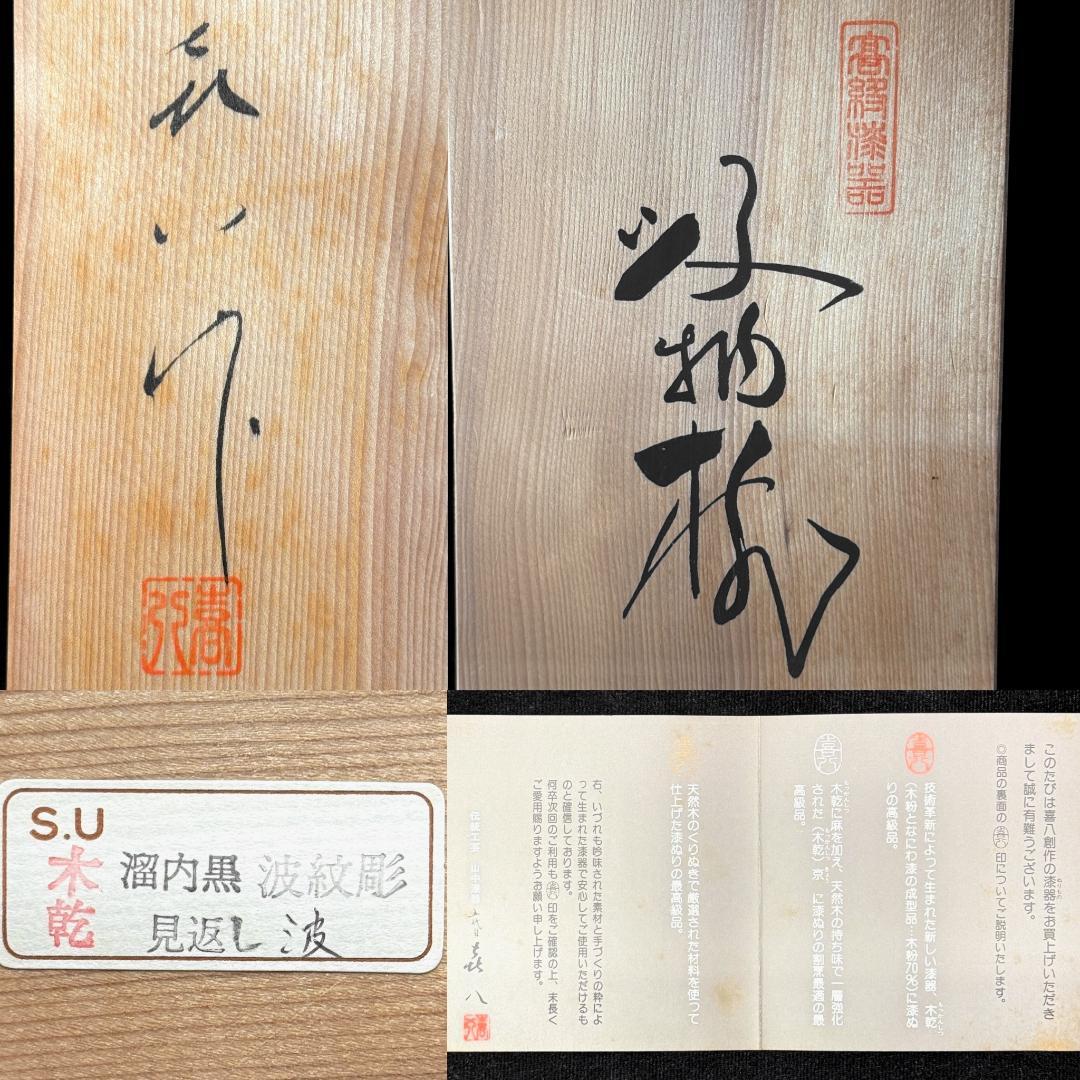 喜八作
喜八
高級漆器
S.U
木乾
溜内黒 波紋彫
見返し 波
このたびは喜八創作の漆器をお買上げいただき
まして誠に有難うございます。
◎商品の裏面の喜八印についてご説明いたします。
喜八
技術革新によって生まれた新しい漆器、木乾
(木粉となにわ漆の成型品…木粉70%)に漆ぬ
りの高級品。
喜八
木乾に麻を加え、天然木の持ち味で一層強化
された(木乾)京 に漆ぬりの割烹最適の最
高級品。
天然木のくりぬきで厳選された材料を使って
仕上げた漆ぬりの最高級品。
右、いづれも吟味された素材と手づくりの粋によ
って生まれた漆器で安心してご使用いただけるも
のと確信しております。
何卒次回のご利用も喜八印をご確認の上、末長く
ご愛用賜りますようお願い申し上げます。
喜八